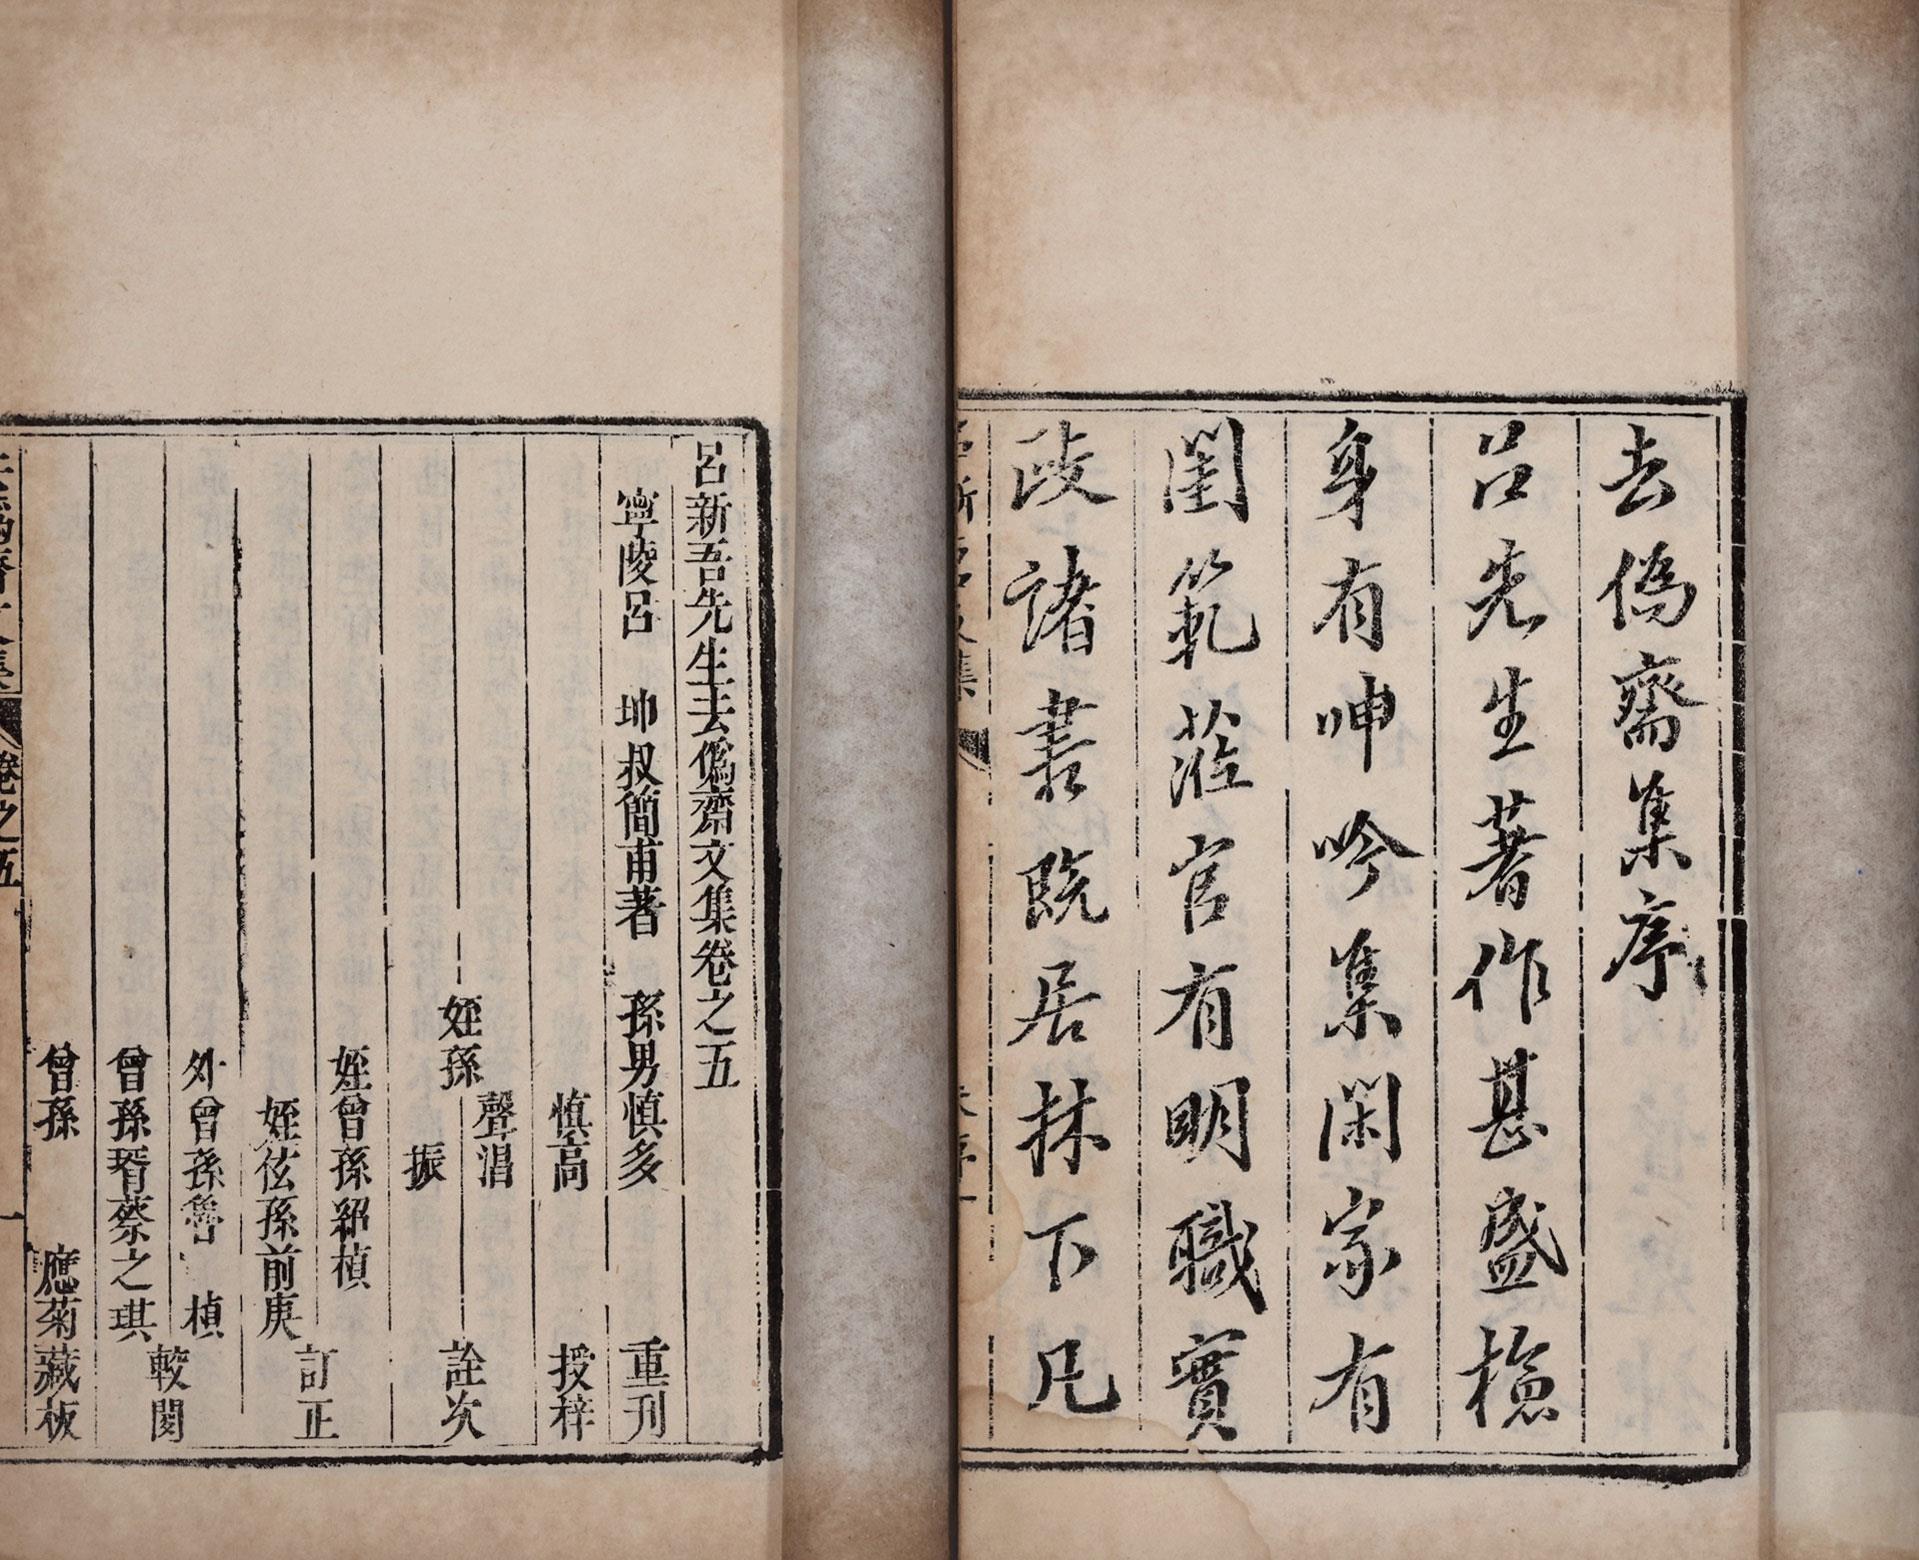 去偽齋集序
呂先生著作甚盛檢
身有呻吟集閑家有
閨範蒞官有明職實
政諸書旣居林下凡
呂新吾先生去僞齋文集卷之五
寧陵呂　坤叔簡甫著　孫男慎多　重刊
慎高　授梓
聲滛
姪孫　詮次
振
姪曾孫紹楨
姪玄孫前庚　訂正
外曾孫魯　楨
曾孫壻蔡之琪　較閱
曾孫　應菊藏板
去偽齋文集　卷之五　一